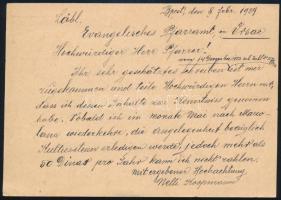 Löbl.
Evangelisches Pfarramt, in
Hochwürdiger Herr Pfarrer!
Ihr sehr geschätztes Schreiben ist mir
zugekommen und teile Hochwürdigen Herrn mit,
dass ich dessen Inhalt zur Kenntniss genommen
habe. Sobald ich im monate Mai nach
wiederkehre, die angelegenheit bezüglich
Kultussteuer erledigen werde, jedoch mehr als
50 Dinar pro Jahr kann ich nicht zahlen.
mit ergebener Hochachtung